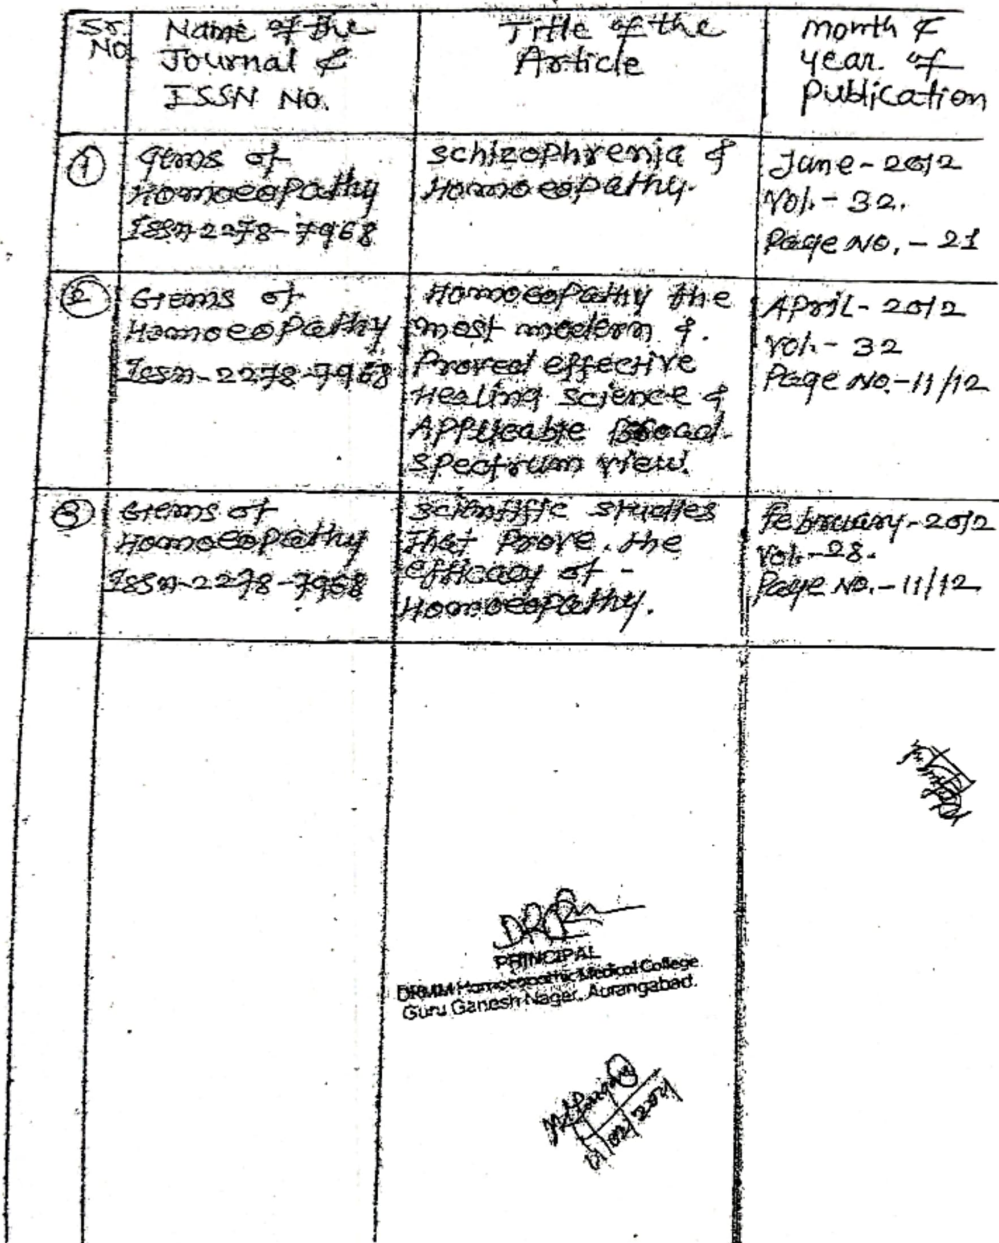 Sr. No
Name of the
Journal &
ISSN No.
Title of the
Article
month &
year. of
Publication
1
Gems of
Homoeopathy
Issn-2278-7968
Schizophrenia &
Homoeopathy.
June-2012
Vol.-32.
Page No.-21
2
Gems of
Homoeopathy
Issn-2278-7968
Homoeopathy the
most modern &
Proved effective
Healing science &
Applicable Broad
spectrum view.
April-2012
Vol.-32
Page No.-11/12
3
Gems of
Homoeopathy
Issn-2278-7968
Scientific studies
that Prove the
efficacy of -
Homoeopathy.
February-2012
Vol.-28.
Page No.-11/12
PRINCIPAL
DRMM Homoeopathic Medical College
Guru Ganesh Nager, Aurangabad.